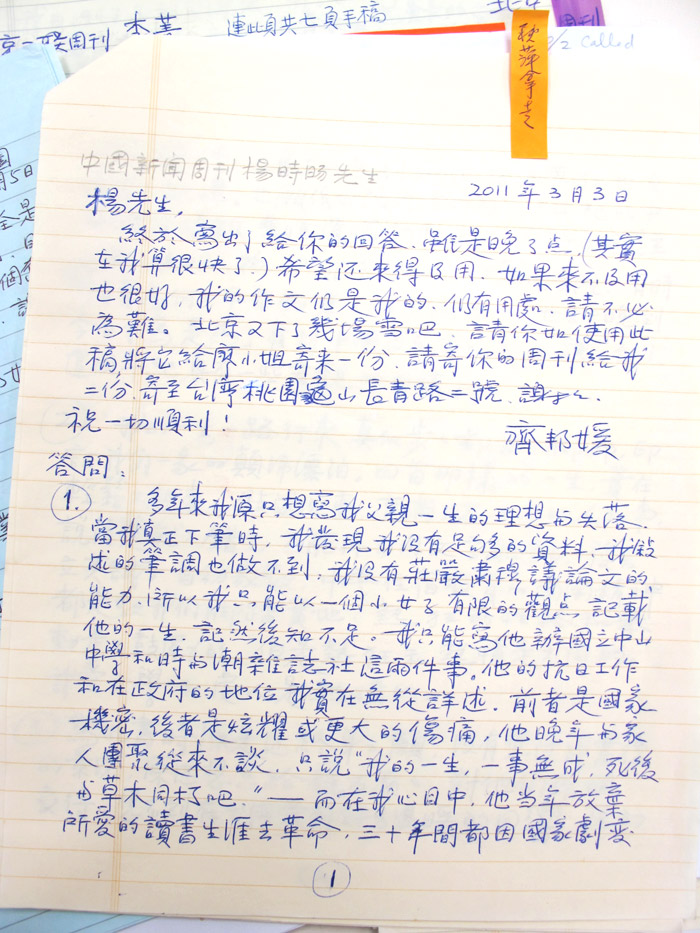 本業
連此頁共七頁手稿
called
拿走
中國新闻周刊 楊時暘先生
2011年3月3日
楊先生,
終於寫出了給你的回答.雖是晚了点,(其實
在我算很快了.)希望还來得及用.如果來不及用
也很好,我的作文仍是我的.仍有用處.請不必
為難。北京又下了幾場雪吧.請你如使用此
稿將它給廖小姐寄來一份.請寄你的周刊給我
二份.寄至台灣桃園龜山長青路二號.謝々.
祝一切順利!
齊邦媛
答問:
1. 多年來我原只想寫我父親一生的理想与失落.
當我真正下筆時,我發現我没有足夠多的資料,我敍
述的筆調也做不到,我没有莊嚴肅穆議論文的
能力,所以我只能以一個小女子有限的觀点記載
他的一生.記然後知不足。我只能寫他辦國立中山
中學和時與潮雜誌社這兩件事。他的抗日工作
和在政府的地位我實在無從詳述.前者是國家
機密,後者是炫耀或更大的傷痛,他晚年与家
人團聚從來不談.只說“我的一生,一事無成,死後
与草木同朽吧.”—而在我心目中,他當年放棄
所愛的讀書生涯去革命,三十年間都因國家劇变
1